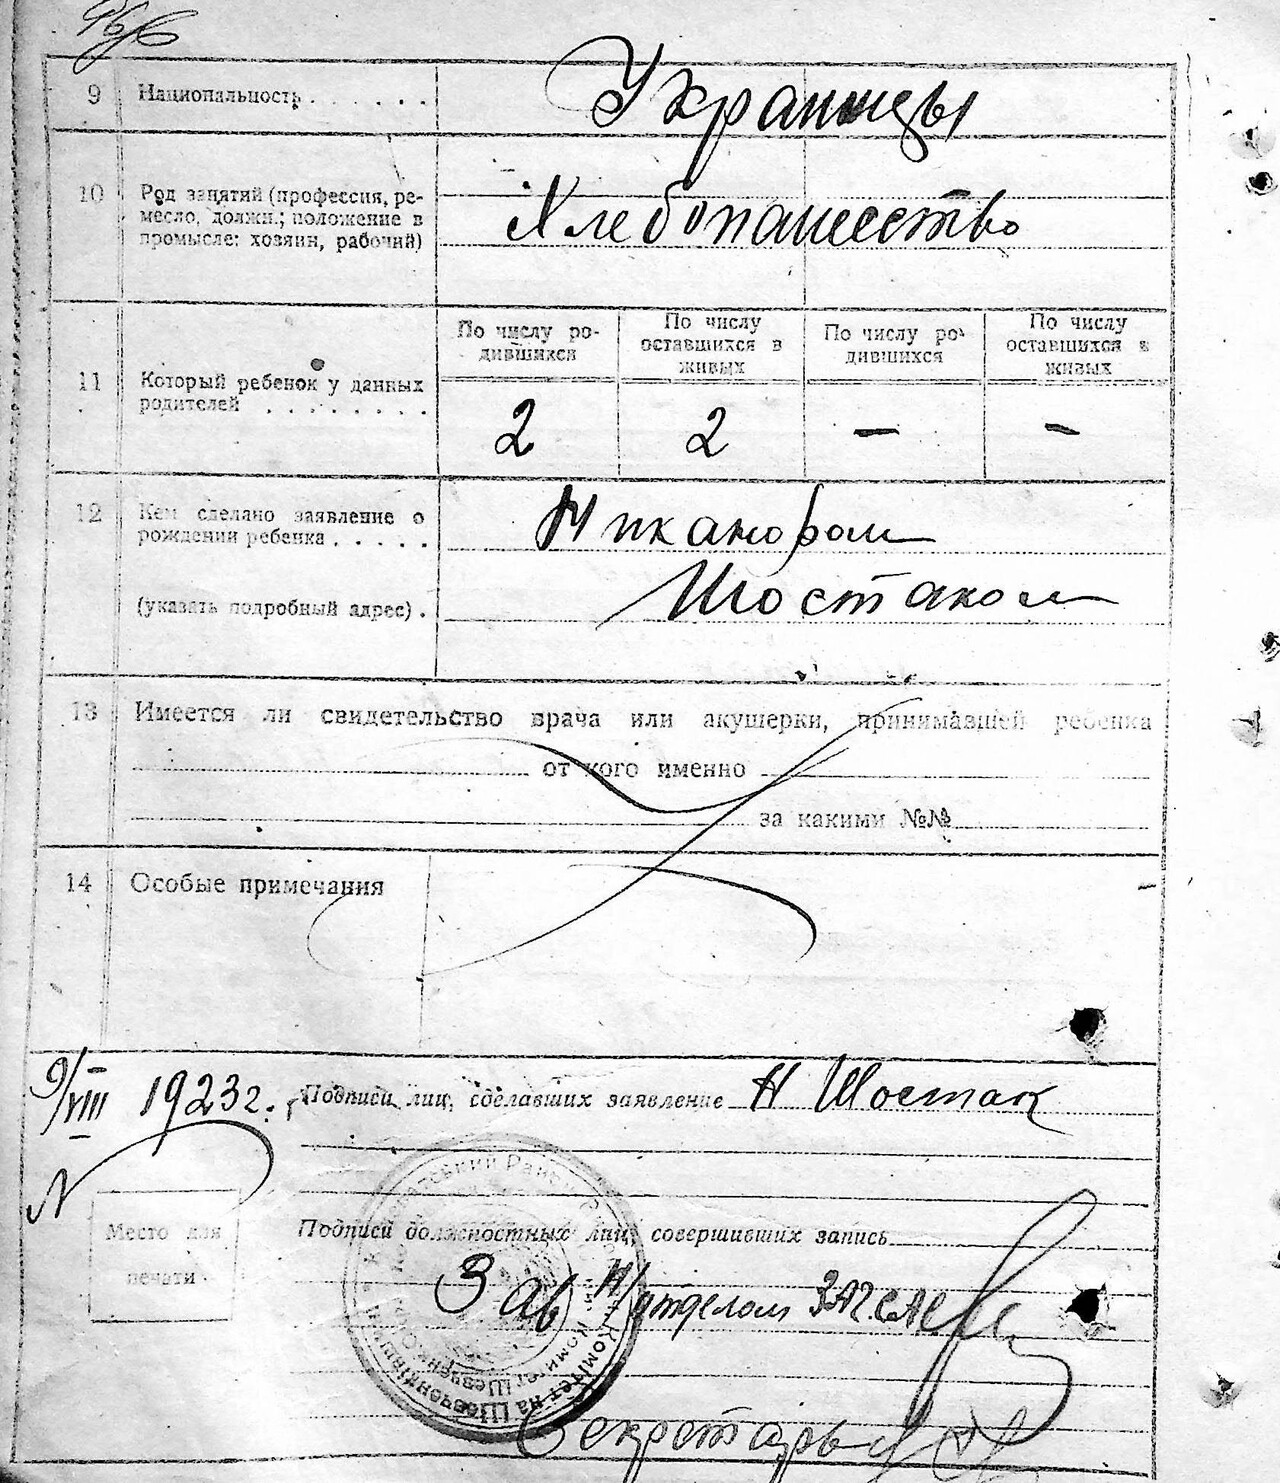 9 Национальность . . . . . . Украинцы
10 Род занятий (профессия, ре-
месло, должн.; положение в
промысле: хозяин, рабочий)
Хлебопашество
11 Который ребенок у данных
родителей . . . . . . . .
По числу ро-
дившихся
По числу
оставшихся в
живых
По числу ро-
дившихся
По числу
оставшихся в
живых
2 2 — —
12 Кем сделано заявление о
рождении ребенка . . . . .
(указать подробный адрес) .
Никанором
Шостаком
13 Имеется ли свидетельство врача или акушерки, принимавшей ребенка
от кого именно
за какими №№
14 Особые примечания
9/VIII 1923 г. Подписи лиц, сделавших заявление Н Шостак
N
Место для
печати
Подписи должностных лиц, совершивших запись
Зав П/отделом ЗАГС
Секретарь